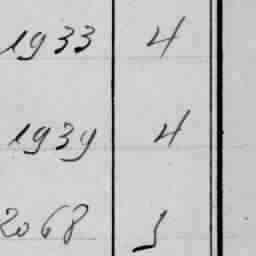 1933 4
1939 4
2068